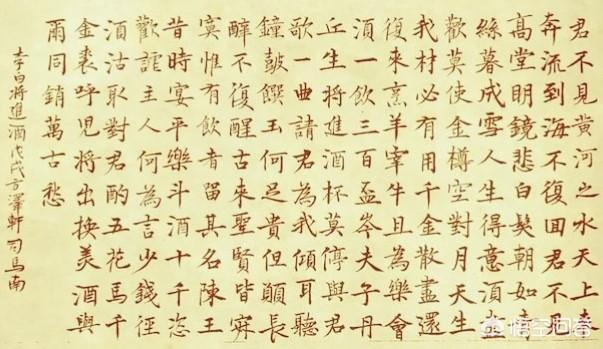 君不見黃河之水天上来
奔流到海不復回君不見
高堂明鏡悲白髮朝如青
絲暮成雪人生得意湏盡
歡莫使金樽空對月天生
我材必有用千金散盡還
復來烹羊宰牛且為樂會
湏一飲三百盃岑夫子丹
丘生將進酒杯莫停與君
歌一曲請君為我傾耳聽
鐘鼓饌玉何足貴但願長
醉不復醒古來聖賢皆寂
寞惟有飲者留其名陳王
昔時宴平樂斗酒十千恣
歡謔主人何為言少錢徑
酒沽取對君酌五花馬千
金裘呼児將出換美酒與
爾同銷萬古愁
李白將進酒戊戌方澤軒司馬南
悟空问答